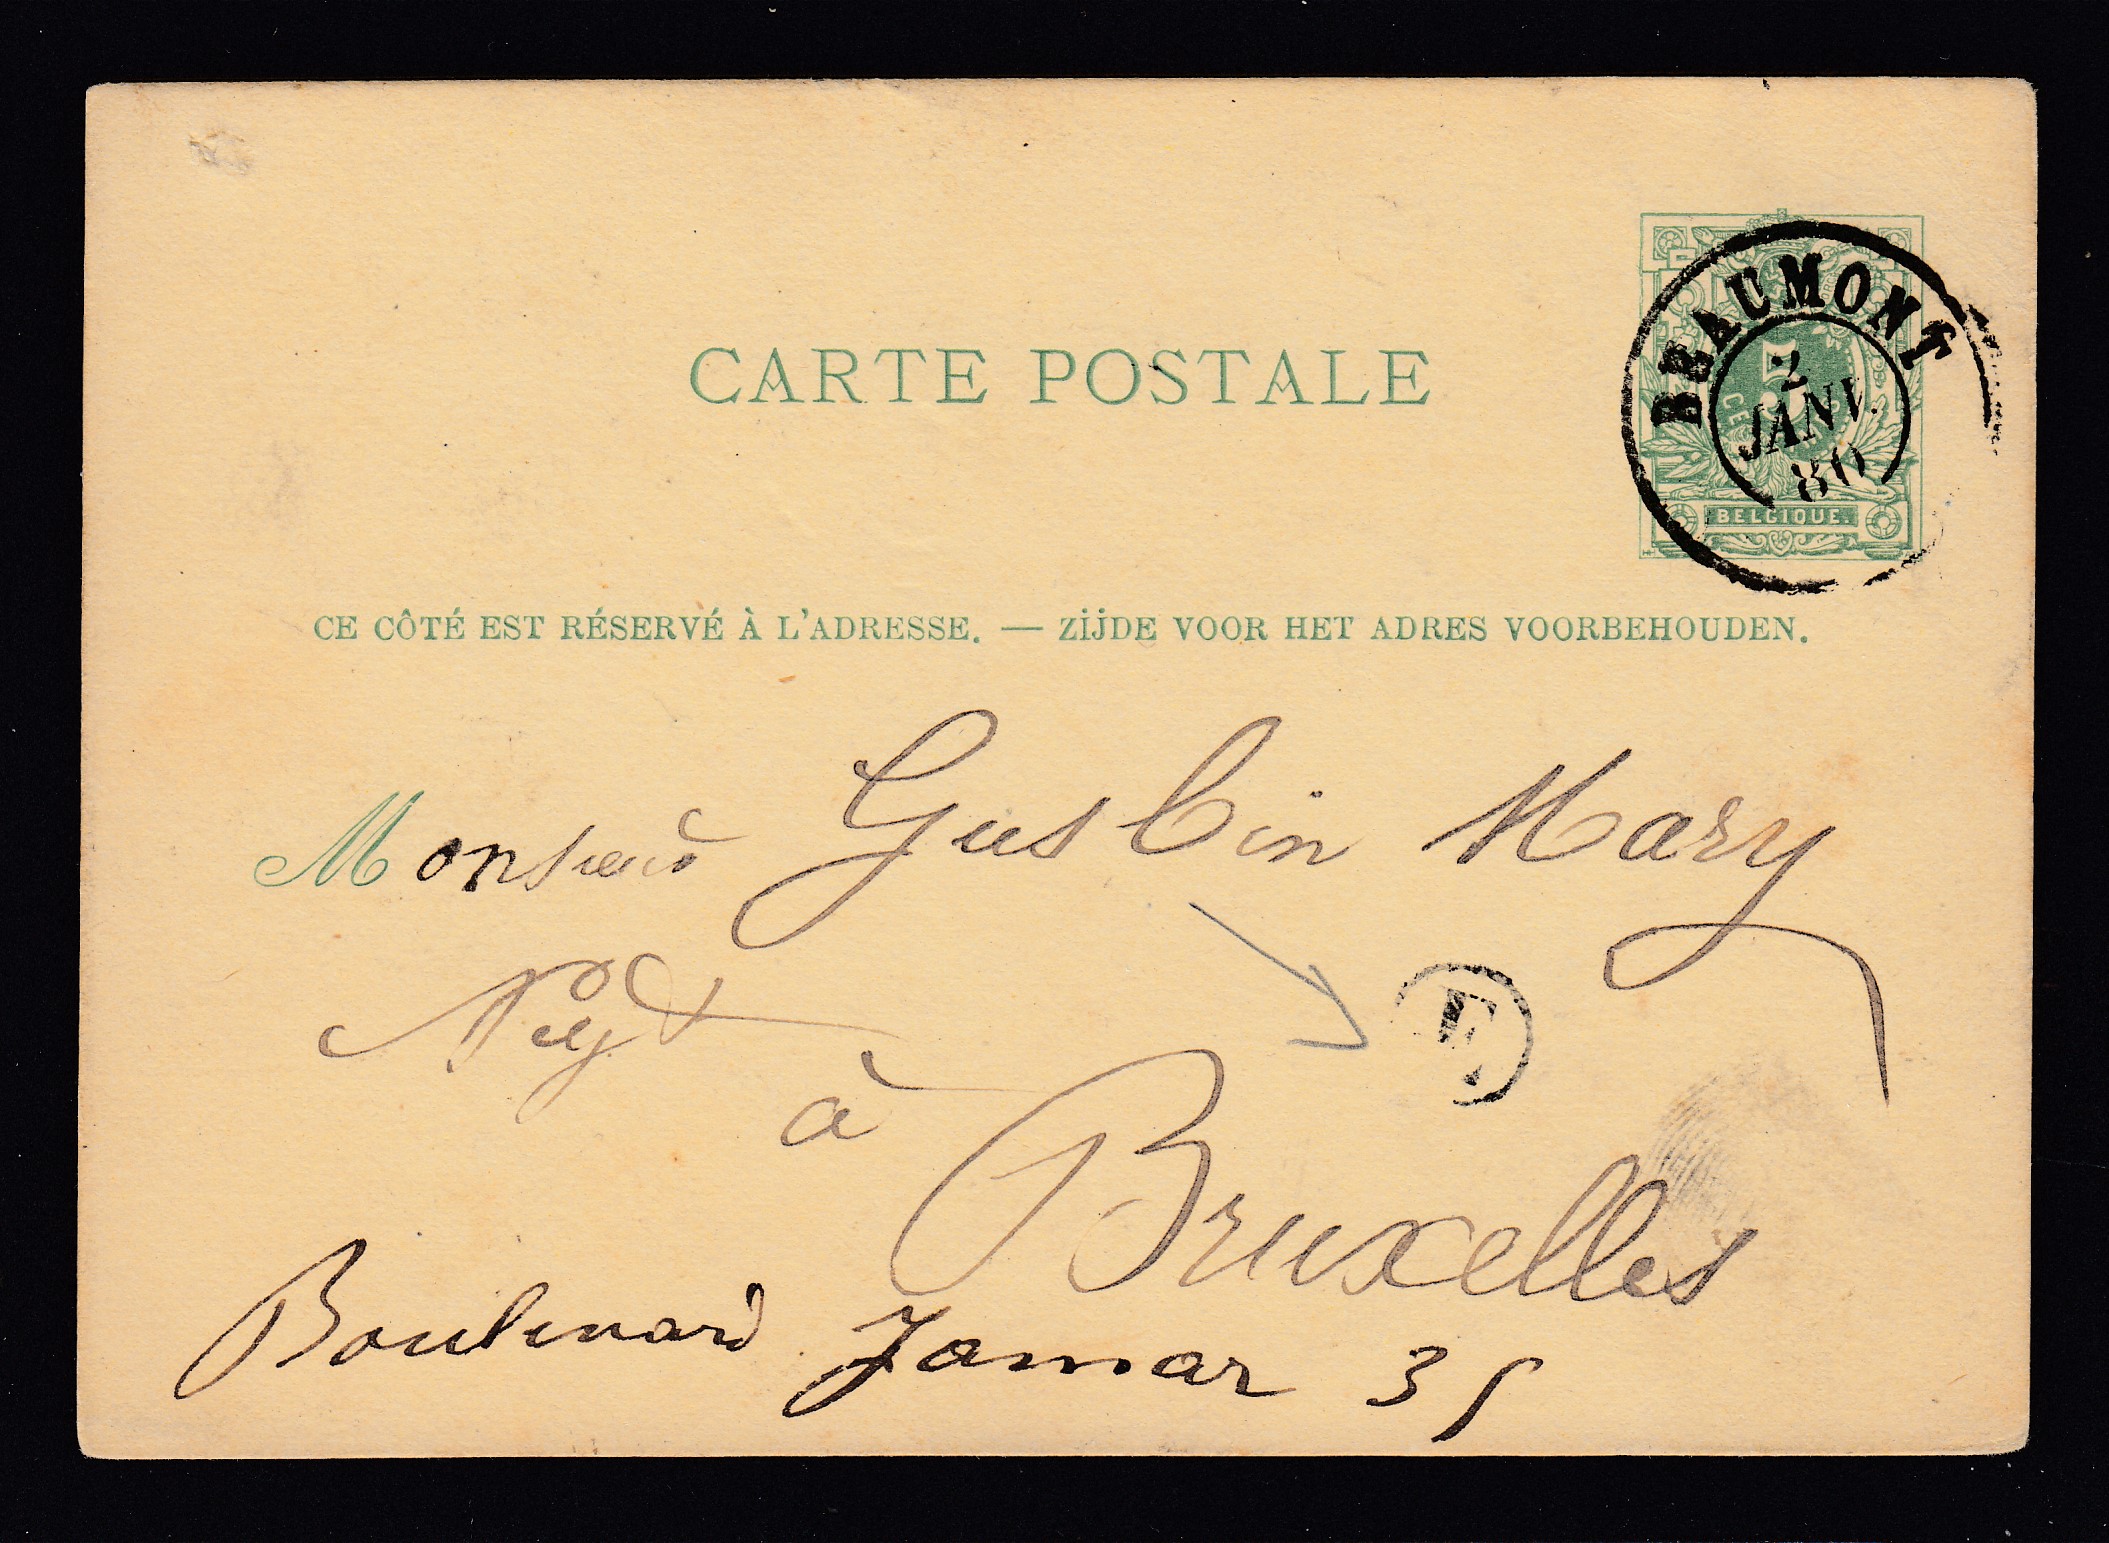 CARTE POSTALE
BEAUMONT
2
JANV.
80
5
BELGIQUE.
CE CÔTÉ EST RÉSERVÉ À L'ADRESSE. — ZIJDE VOOR HET ADRES VOORBEHOUDEN.
Monsieur Guslin Mary
Negt
à
E
Bruxelles
Boulevard Jamar 35